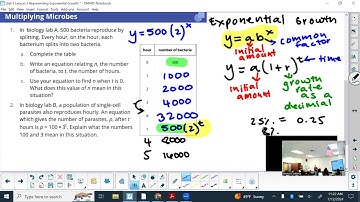 Unit 5 Lesson 5 Representing Exponential Growth* - SMART Notebook
Multiplying Microbes
1. In biology lab A, 500 bacteria reproduce by
splitting. Every hour, on the hour, each
bacterium splits into two bacteria.
a. Complete the table
b. Write an equation relating n, the number of
bacteria, to t, the number of hours.
c. Use your equation to find n when t is 0.
What does this value of n mean in this
situation?
2. In biology lab B, a population of single-cell
parasites also reproduces hourly. An equation
which gives the number of parasites, p, after t
hours is p = 100 • 3ᵗ. Explain what the numbers
100 and 3 mean in this situation.
y=500(2)ˣ
hour number of bacteria
0 500
1 1000
2 2000
3 4000
6 32000
t 500(2)ᵗ
4 8000
5 16000
Exponential Growth
y=abˣ
common
factor
initial
amount
y=a(1+r)ᵗ
time
initial
amount
growth
rate
as a
decimal
25% = 0.25
8%
68°F Sunny
11:22 AM